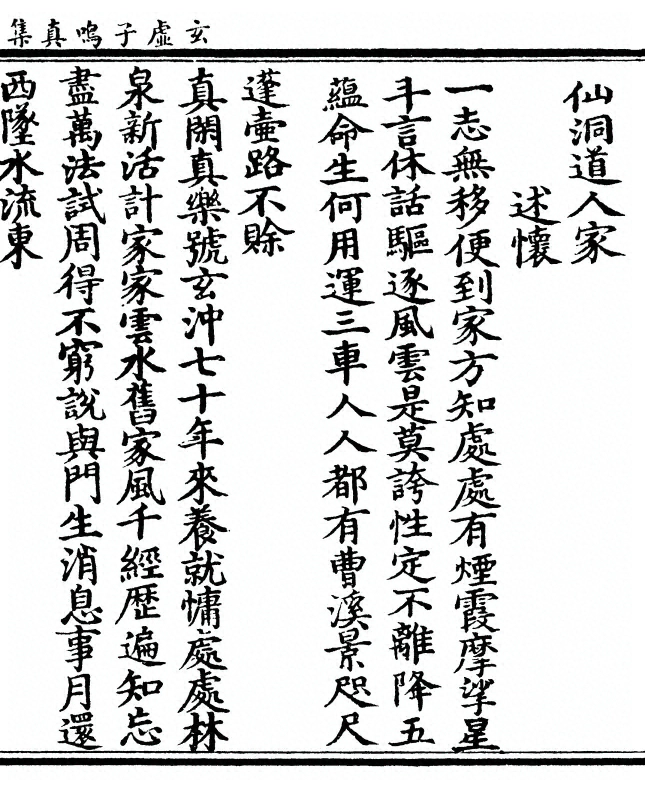 玄虛子鳴真集
仙洞道人家
述懷
一志無移便到家方知處處有煙霞摩挲星
斗言休話驅逐風雲是莫誇性定不離降五
蘊命生何用運三車人人都有曹溪景咫尺
蓬壺路不賒
真閑真樂號玄沖七十年來養就慵處處林
泉新活計家家雲水舊家風千經歷遍知忘
盡萬法試周得不窮說與門生消息事月還
西墜水流東